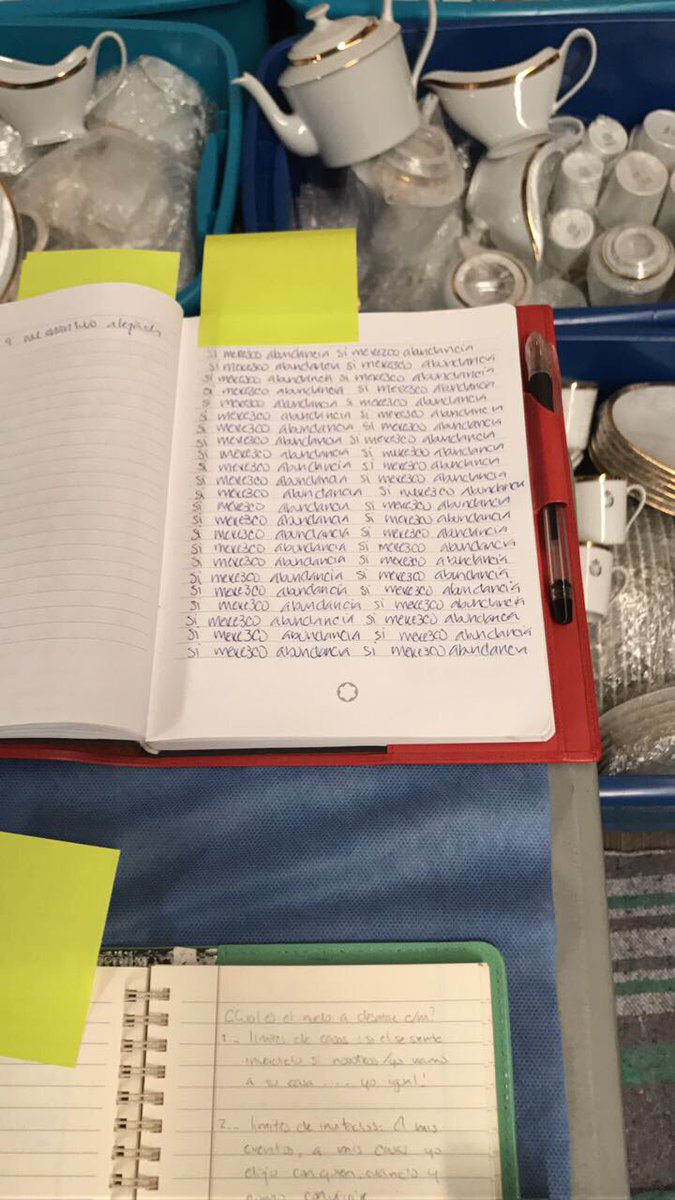 a mi marido alejado
si merezco abundancia si merezco abundancia
si merezco abundancia si merezco abundancia
si merezco abundancia si merezco abundancia
si merezco abundancia si merezco abundancia
si merezco abundancia si merezco abundancia
si merezco abundancia si merezco abundancia
si merezco abundancia si merezco abundancia
si merezco abundancia si merezco abundancia
si merezco abundancia si merezco abundancia
si merezco abundancia si merezco abundancia
si merezco abundancia si merezco abundancia
si merezco abundancia si merezco abundancia
si merezco abundancia si merezco abundancia
si merezco abundancia si merezco abundancia
si merezco abundancia si merezco abundancia
si merezco abundancia si merezco abundancia
si merezco abundancia si merezco abundancia
si merezco abundancia si merezco abundancia
si merezco abundancia si merezco abundancia
si merezco abundancia si merezco abundancia
si merezco abundancia si merezco abundancia
si merezco abundancia si merezco abundancia
si merezco abundancia si merezco abundancia
¿Cuál es el miedo a c/m?
1.- limites de casas: si el se siente
si nosotros/yo vamos
a su casa .... yo igual!
2.- limites de : A mis
eventos, a mis casas yo
elijo con quien, cuando y
convivir